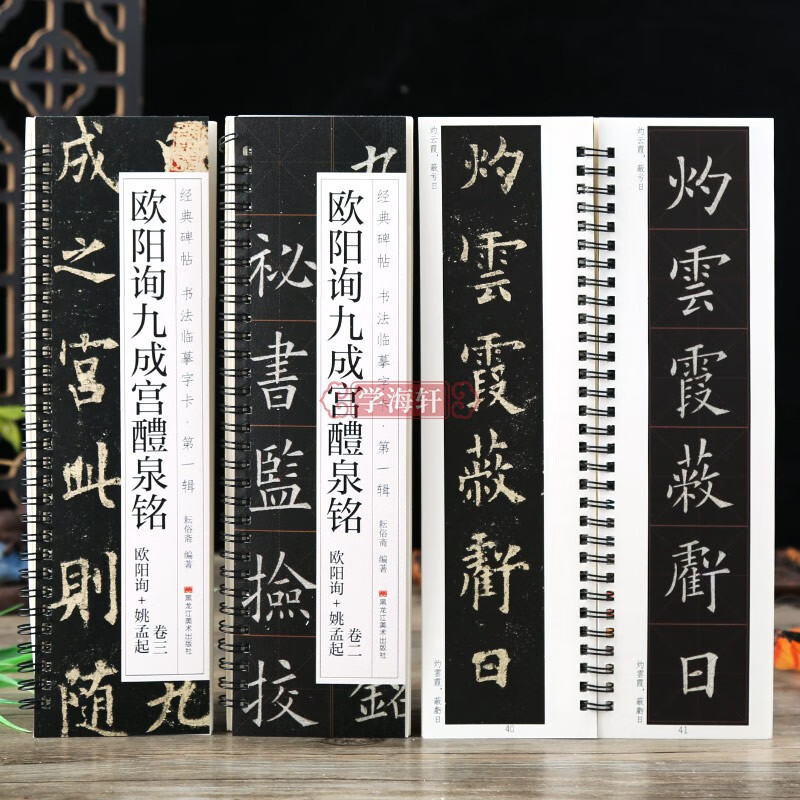 成
之
宫
此
則
随
九
经典碑帖 书法临摹字卡·第一辑
欧阳询九成宫醴泉铭
欧阳询+姚孟起
卷三
耘俗斋 编著
黑龙江美术出版社
九
祕
書
監
撿
挍
銘
经典碑帖 书法临摹字卡·第一辑
欧阳询九成宫醴泉铭
欧阳询+姚孟起
卷二
耘俗斋 编著
黑龙江美术出版社
学海轩
灼云霞，蔽亏日
灼
雲
霞
蔽
虧
日
灼雲霞，蔽虧日
40
灼云霞，蔽亏日
灼
雲
霞
蔽
虧
日
灼雲霞，蔽虧日
41